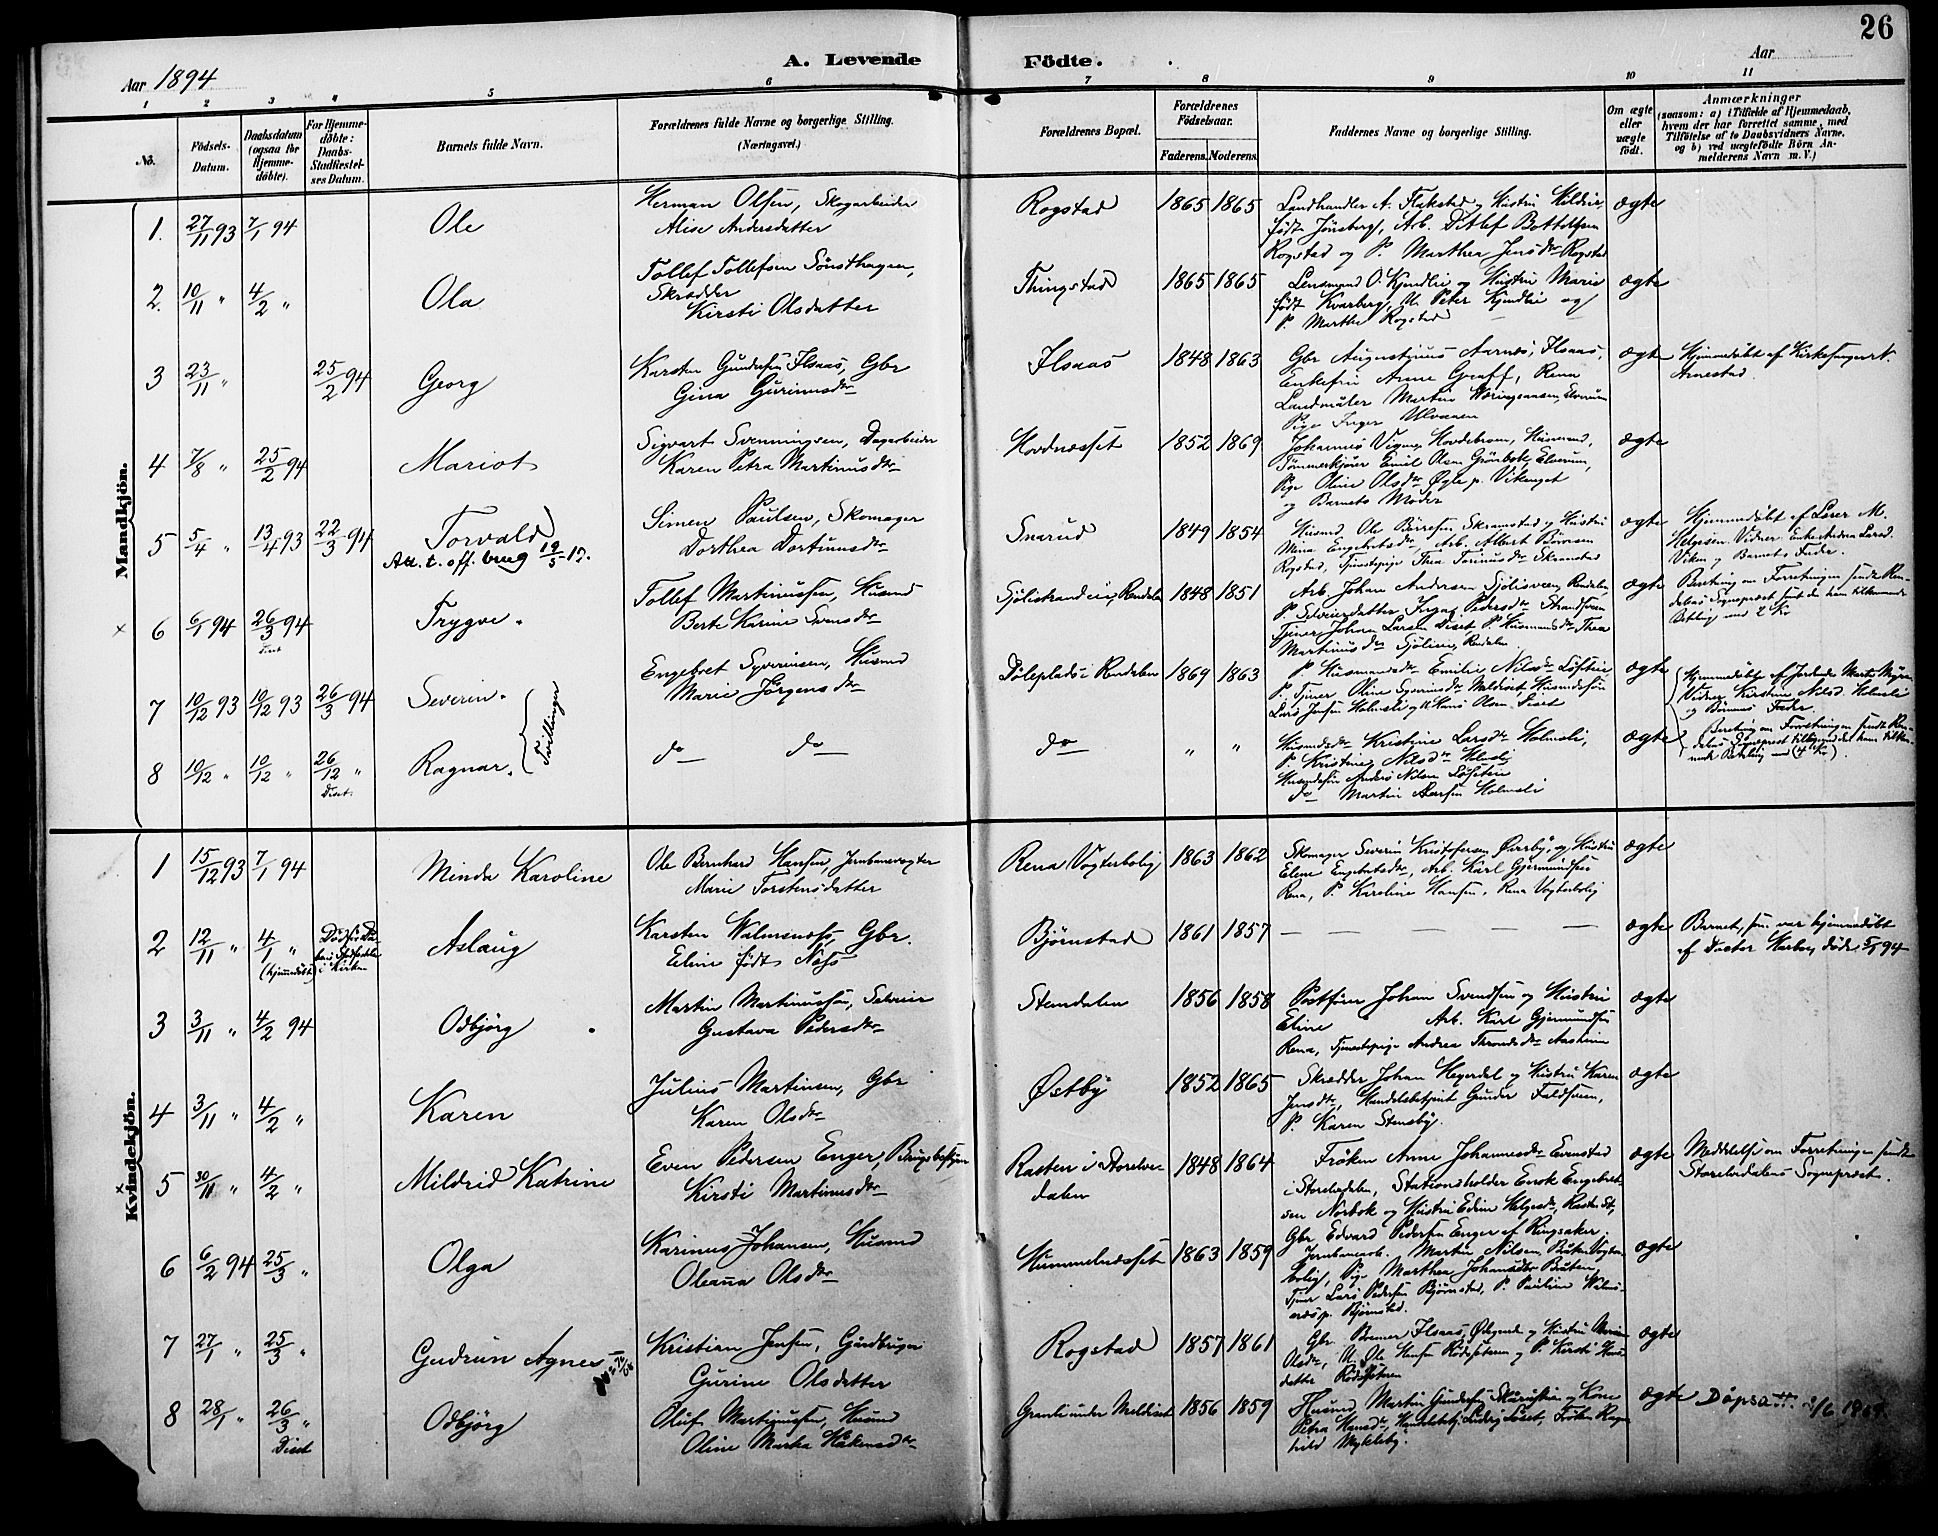 26
A. Levende Födte.
Aar 1894
Aar
1 2 3 4 5 6 7 8 9 10 11
No.
Födsels-Datum.
Daabsdatum (ogsaa for Hjemme-döbte).
For Hjemme-döbte: Daabs-Stadfæstel-ses Datum.
Barnets fulde Navn.
Forældrenes fulde Navne og borgerlige Stilling.
(Næringsvei.)
Forældrenes Bopæl.
Forældrenes Födselsaar.
Faderens. Moderens.
Faddernes Navne og borgerlige Stilling.
Om ægte eller uægte födt.
Anmærkninger
(saasom: a) i Tilfælde af Hjemmedaab, hvem der har forrettet samme, med Tilföielse af to Daabsvidners Navne, og b) ved uægtefödte Börn An-melderens Navn m. V.)
Mandkjön.
1. 27/11 93 7/1 94 Ole
Herman Olsen, Skogarbeider
Alise Andersdatter
Rogstad 1865 1865
Landhandler A. Flakstad og Hustru
født Jönsberg, Arb. Ditlef
Rogstad og P. Marthea Jensdr Rogstad
ægte
2. 10/11 " 4/2 " Ola
Tollef Tollefsen Sönsthagen,
Skrædder
Kirsti Olsdatter
Thingstad 1865 1865
Lensmand O. Kjndlie og Hustru Marie
født Kvarberg, U. Peter Kjndlie og
P. Marthe Rogstad
ægte
3 23/11 " 25/2 94 Georg
Karsten Gundersen Ilsaas, Gbr
Gina Gurinusdr
Ilsaas 1848 1863
Gbr Augustinus Aarnæs, Ilsaas,
Enkefru Anne Graff, Rena
Landmåler Martin Elverum
Pige Inger Ulvaaen
ægte
Hjemmedøbt af Kirkesanger N.
Arnestad.
4 7/8 " 25/2 94 Mariot
Sigvart Svenningsen, Dagarbeider
Karen Petra Martinusdr
Hovdnæsset 1852 1869
Johannes Vigner, Hovdebroen, Husmand,
Tömmerkjörer Emil Olsen Grönbek, Elverum,
Pige Oline Olsdr Øgle p. Vikenget
og Barnets Moder
ægte
5 5/4 " 13/4 93 22/3 94 Torvald
Att. t. off. brug 19/3 12.
Simen Paulsen, Skomager
Dorthea Dortinusdr
Snarud 1849 1854
Husmd. Ole Börresen Skramstad og Hustru
Mina Engebretsdr Arb. Albert Börresen
Rogstad, Tjenestepige Thea Torinusdr Skramstad
ægte
Hjemmedøbt af Lærer M.
Helgesen. Vidner: Enke Andrea Larsd.
Viken og Barnets Fader.
6 6/1 94 26/3 94 Diset Trygve.
Tollef Martinussen, Husmd
Berte Karine Svensdr
Sjölistranden i Rendalen 1848 1851
Arb. Johan Andersen Sjölisveen, Rendalen,
P. Selveierdatter Ingag Pedersdr Strandsveen
Tjener Johan Larsen Diset, P. Husmandsdr Thea
Martinusdr Sjölien, Rendalen
ægte
Beretning om Forretningen sendt Ren-
dalens Sognepræst samt de ham tilkommende
Betaling med 2 Kr
7 10/12 93 10/12 93 26/3 94 Severin.
Tvillinger
Engebret Syverinsen, Husmd
Marie Jörgensdr
Döleplads i Rendalen 1869 1863
P. Husmandsdr Emilie Nilsdr Löfstein
P. Tjener Oline Syverinsdr Meldiset, Husmdssön
Lars Jensen Holmsli og U. Hans Olsen Diset
ægte
Hjemmedøbt af Martе Myren
Vidner Kirstine Nilsd. Holmsli
og Börnenes Fader.
8 10/12 " 10/12 " 26/12 " Diset. Ragnar.
do do
do " "
Husmdsdr Kristine Larsdr Holmsli,
P. Kristine Nilsdr Holmsli
Husmdssön Anders Nilsen Löfstein
do Martin Larsen Holmsli
ægte
Beretning om Forretningen sendt Ren-
dalens Sognepræst tilligemed det ham tilkom-
mende Betaling med (4 Kr).
Kvindekjön.
1 15/12 93 7/1 94 Minda Karoline
Ole Bernhard Hansen, Jernbanevogter
Marie Torstensdatter
Rena Vogterbolig 1863 1862
Skomager Severin Kristofersen Øverby, og Hustru
Eline Engebretsdr, Arb. Karl Gjermundsen
Rena, P. Karoline Hansen, Rena Vogterbolig
ægte
2 12/11 " 4/1 " (hjemmedöbt) Aslaug
Död för Daa-
bens Stadfæstelse
i Kirken
Karsten Walmsnæss, Gbr.
Eline født Næss
Bjørnstad 1861 1857
— — — — —
ægte
Barnet, som var hjemmedøbt
af Doctor Harboe, døde 5/1 94
3 3/11 " 4/2 94 Odbjörg
Martin Martinussen, Selveier
Gustava Pedersdr
Stemdalen 1856 1858
Postfører Johan Svendsen og Hustru
Eline Arb. Karl Gjermundsen
Rena, Tjenestepige Andrea Throndsdr Aasheim
ægte
4 3/11 " 4/2 " Karen
Julius Martinsen, Gbr
Karen Olsdr
Østby 1852 1865
Skrædder Johan Heyerdal og Hustru Karen
Jensdr, Handelsbetjent Gunder Faldsveen,
P. Karen Stensby.
ægte
5 30/11 " 4/2 " Mildrid Katrine
Even Pedersen Enger, Brugsbestyrer
Kirsti Martinusdr
Rasten i Storelve-
dalen 1848 1864
Fröken Anne Johannesdr Evenstad
i Storelvdalen, Stationsholder Enok Engebret-
sen Norbok og Hustru Edine Helgesdr, Rasten St,
Gbr Edvard Pedersen Enger af Ringsaker
ægte
Meddelelse om Forretningen sendt
Storelvdalens Sognepræst.
6 6/2 94 25/3 " Olga
Karinus Johansen, Husmd
Oleana Olsdr
Hummelnæsset 1863 1859
Jernbanearb. Martin Nilsen, Buten Vogter-
bolig, Pige Marthea Johansdr Buten,
Tjener Lars Pedersen Bjørnstad, P. Pauline Walms-
næs p. Bjørnstad.
ægte
7 27/1 " 25/3 " Gudrun Agnes
Kristian Jensen, Gaardbruger
Gurine Olsdatter
Rogstad 1857 1861
Gbr Brener Ilsaas, Ødegaard og Hustru Maren
Olsdr, U. Ole Hansen Rödsæteren og P. Kirsti Hans-
datter Rödsæteren
ægte
8 28/1 " 26/3 " Diset Odbjörg
Oluf Martinussen, Husmd
Oline Marka Håkensdr
Granli under Meldiset 1856 1859
Husmd Martin Gundersen og Kone
Petra Hansdr, Handelsbetj. Ludvig Diset, Fröken Ragn-
hild Mykleby.
ægte
Döpsatt. 2/6 1964